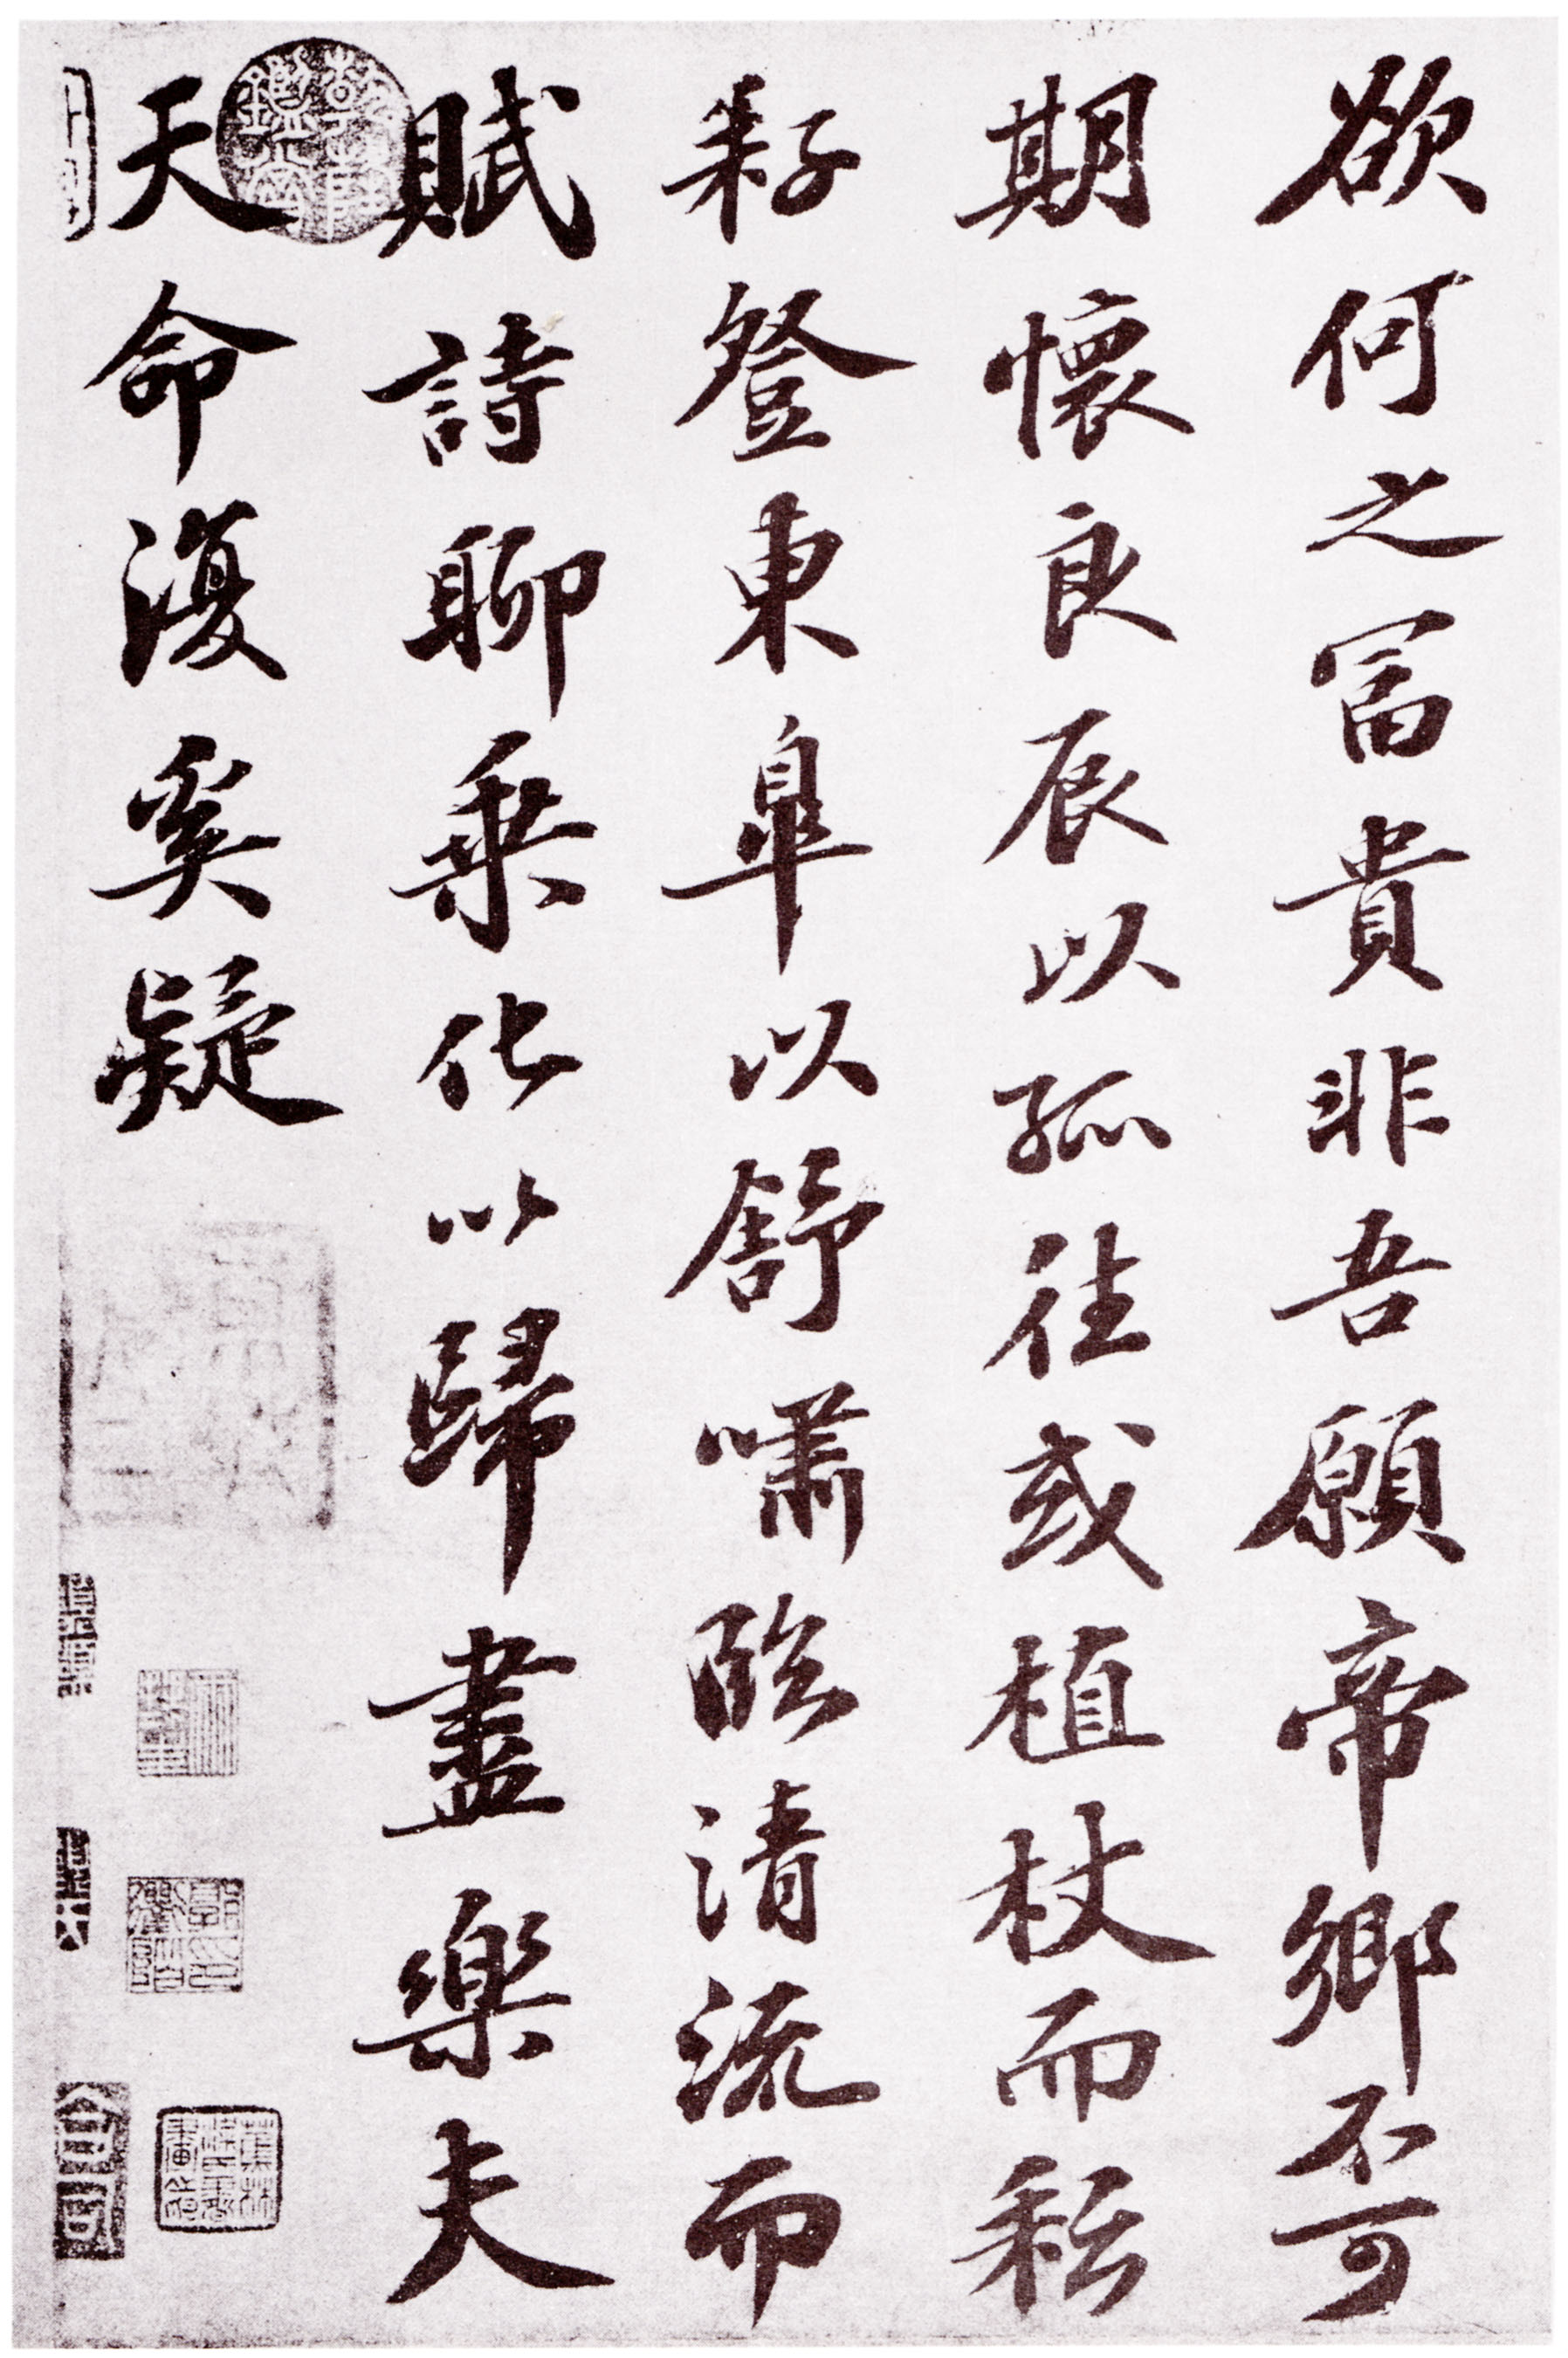 欲何之富貴非吾願帝鄉不可
期懷良辰以孤往或植杖而耘
耔登東皐以舒嘯臨清流而
賦詩聊乗化以歸盡樂夫
天命復奚疑